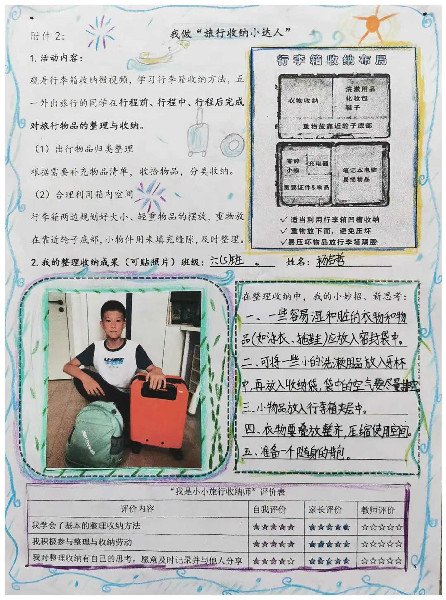 附件 2：
我做“旅行收纳小达人”
1. 活动内容：
观看行李箱收纳微视频，学习行李箱收纳方法，五
一外出旅行的同学在行程前、行程中、行程后完成
对旅行物品的整理与收纳。
（1）出行物品归类整理
根据需要补充物品清单，收拾物品，分类收纳。
（2）合理利用箱内空间
行李箱两边规划好大小、轻重物品的摆放，重物放
在靠近轮子底部，小物件用来填充缝隙，及时整理。
行李箱收纳布局
衣物收纳
洗漱用品
化妆包
鞋子
重物放靠近轮子底部
零碎
小物
充电器
重要证件&单品
笔记本电脑
易损物品
✓ 适当利用行李箱凹槽收纳
✓ 重物放下面，避免压坏
✓ 易压坏物品放行李箱隔层
2. 我的整理收纳成果（可贴照片）班级：六(5)班 姓名：
在整理收纳中，我的小妙招、新思考：
一、一些容易湿和脏的衣物和物
品(如泳衣、拖鞋)应放入密封袋中。
二、可将一些小的洗漱用品放入牙杯
中，再放入收纳袋，袋中的空气要尽量排空
三、小物品放入行李箱夹层中。
四、衣物要叠放整齐，压缩使用空间
五、准备一个随身的背包。
“我是小小旅行收纳师”评价表
评价内容 自我评价 家长评价 教师评价
我学会了基本的整理收纳方法 ★★★★★ ★★★★★ ☆☆☆☆☆
我积极参与整理与收纳劳动 ★★★★★ ★★★★★ ☆☆☆☆☆
我对整理收纳有自己的思考，愿意及时记录并与他人分享 ★★★★★ ★★★★★ ☆☆☆☆☆